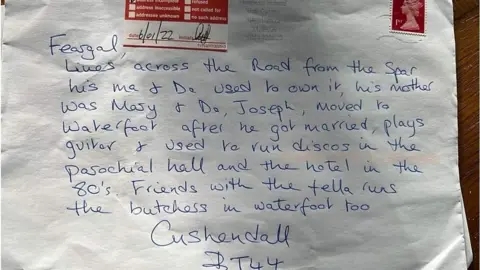 address inaccessible
addresses unknown
refused
not called for
no such address
6/01/22
1st
Feargal,
Lives across the Road from the Spar
his ma & Da used to own it, his mother
was Mary & Da, Joseph, moved to
Waterfoot after he got married, plays
guitar & used to run discos in the
parochial hall and the hotel in the
80's Friends with the fella runs
the butchers in waterfoot too
Cushendall
BT44